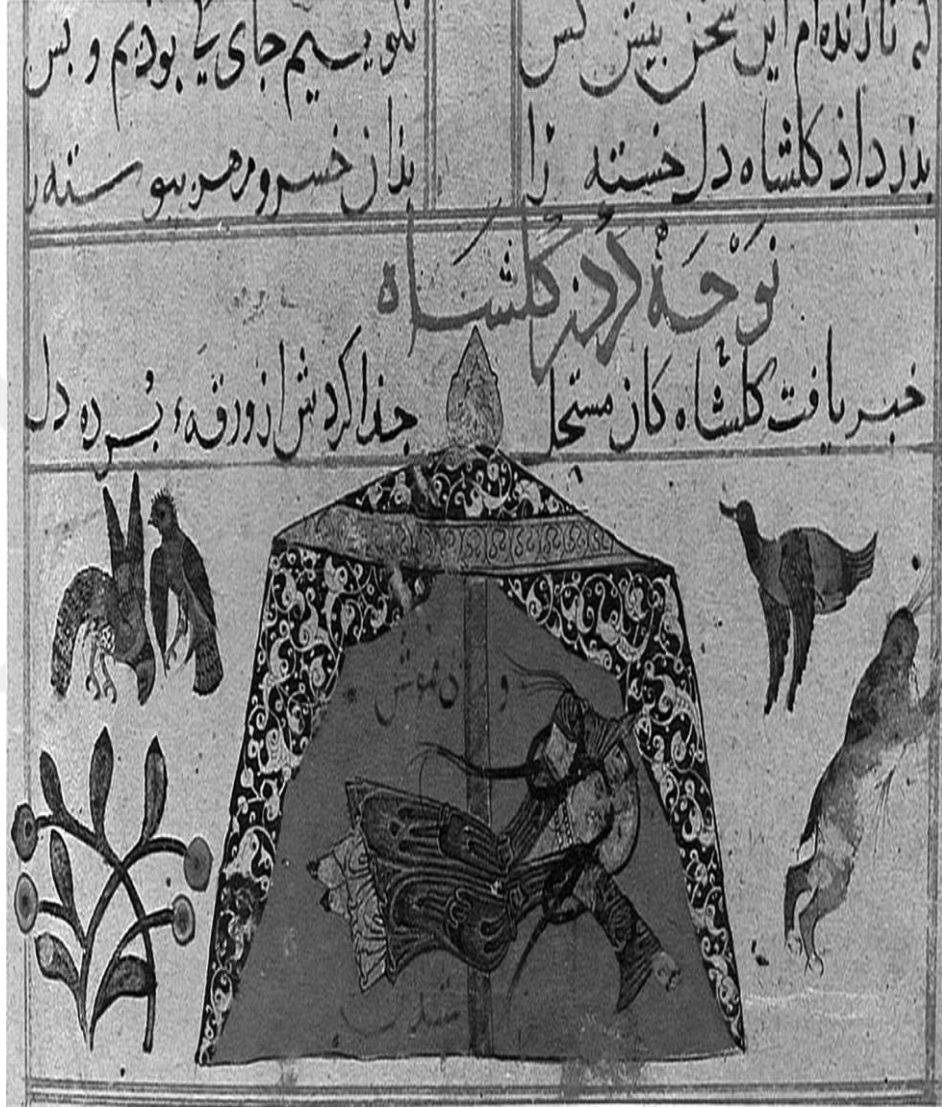 تا زنده‌ام این سخن پیش کس بودیم و بس
بذر داذ کلشاه دل خسته را بذان خسرو مهر بیوسته
نَوحَهٔ کردن کلشاه
خبر یافت کلشاه کان مستحل جذا کردش از ورقهٔ بُرده دل